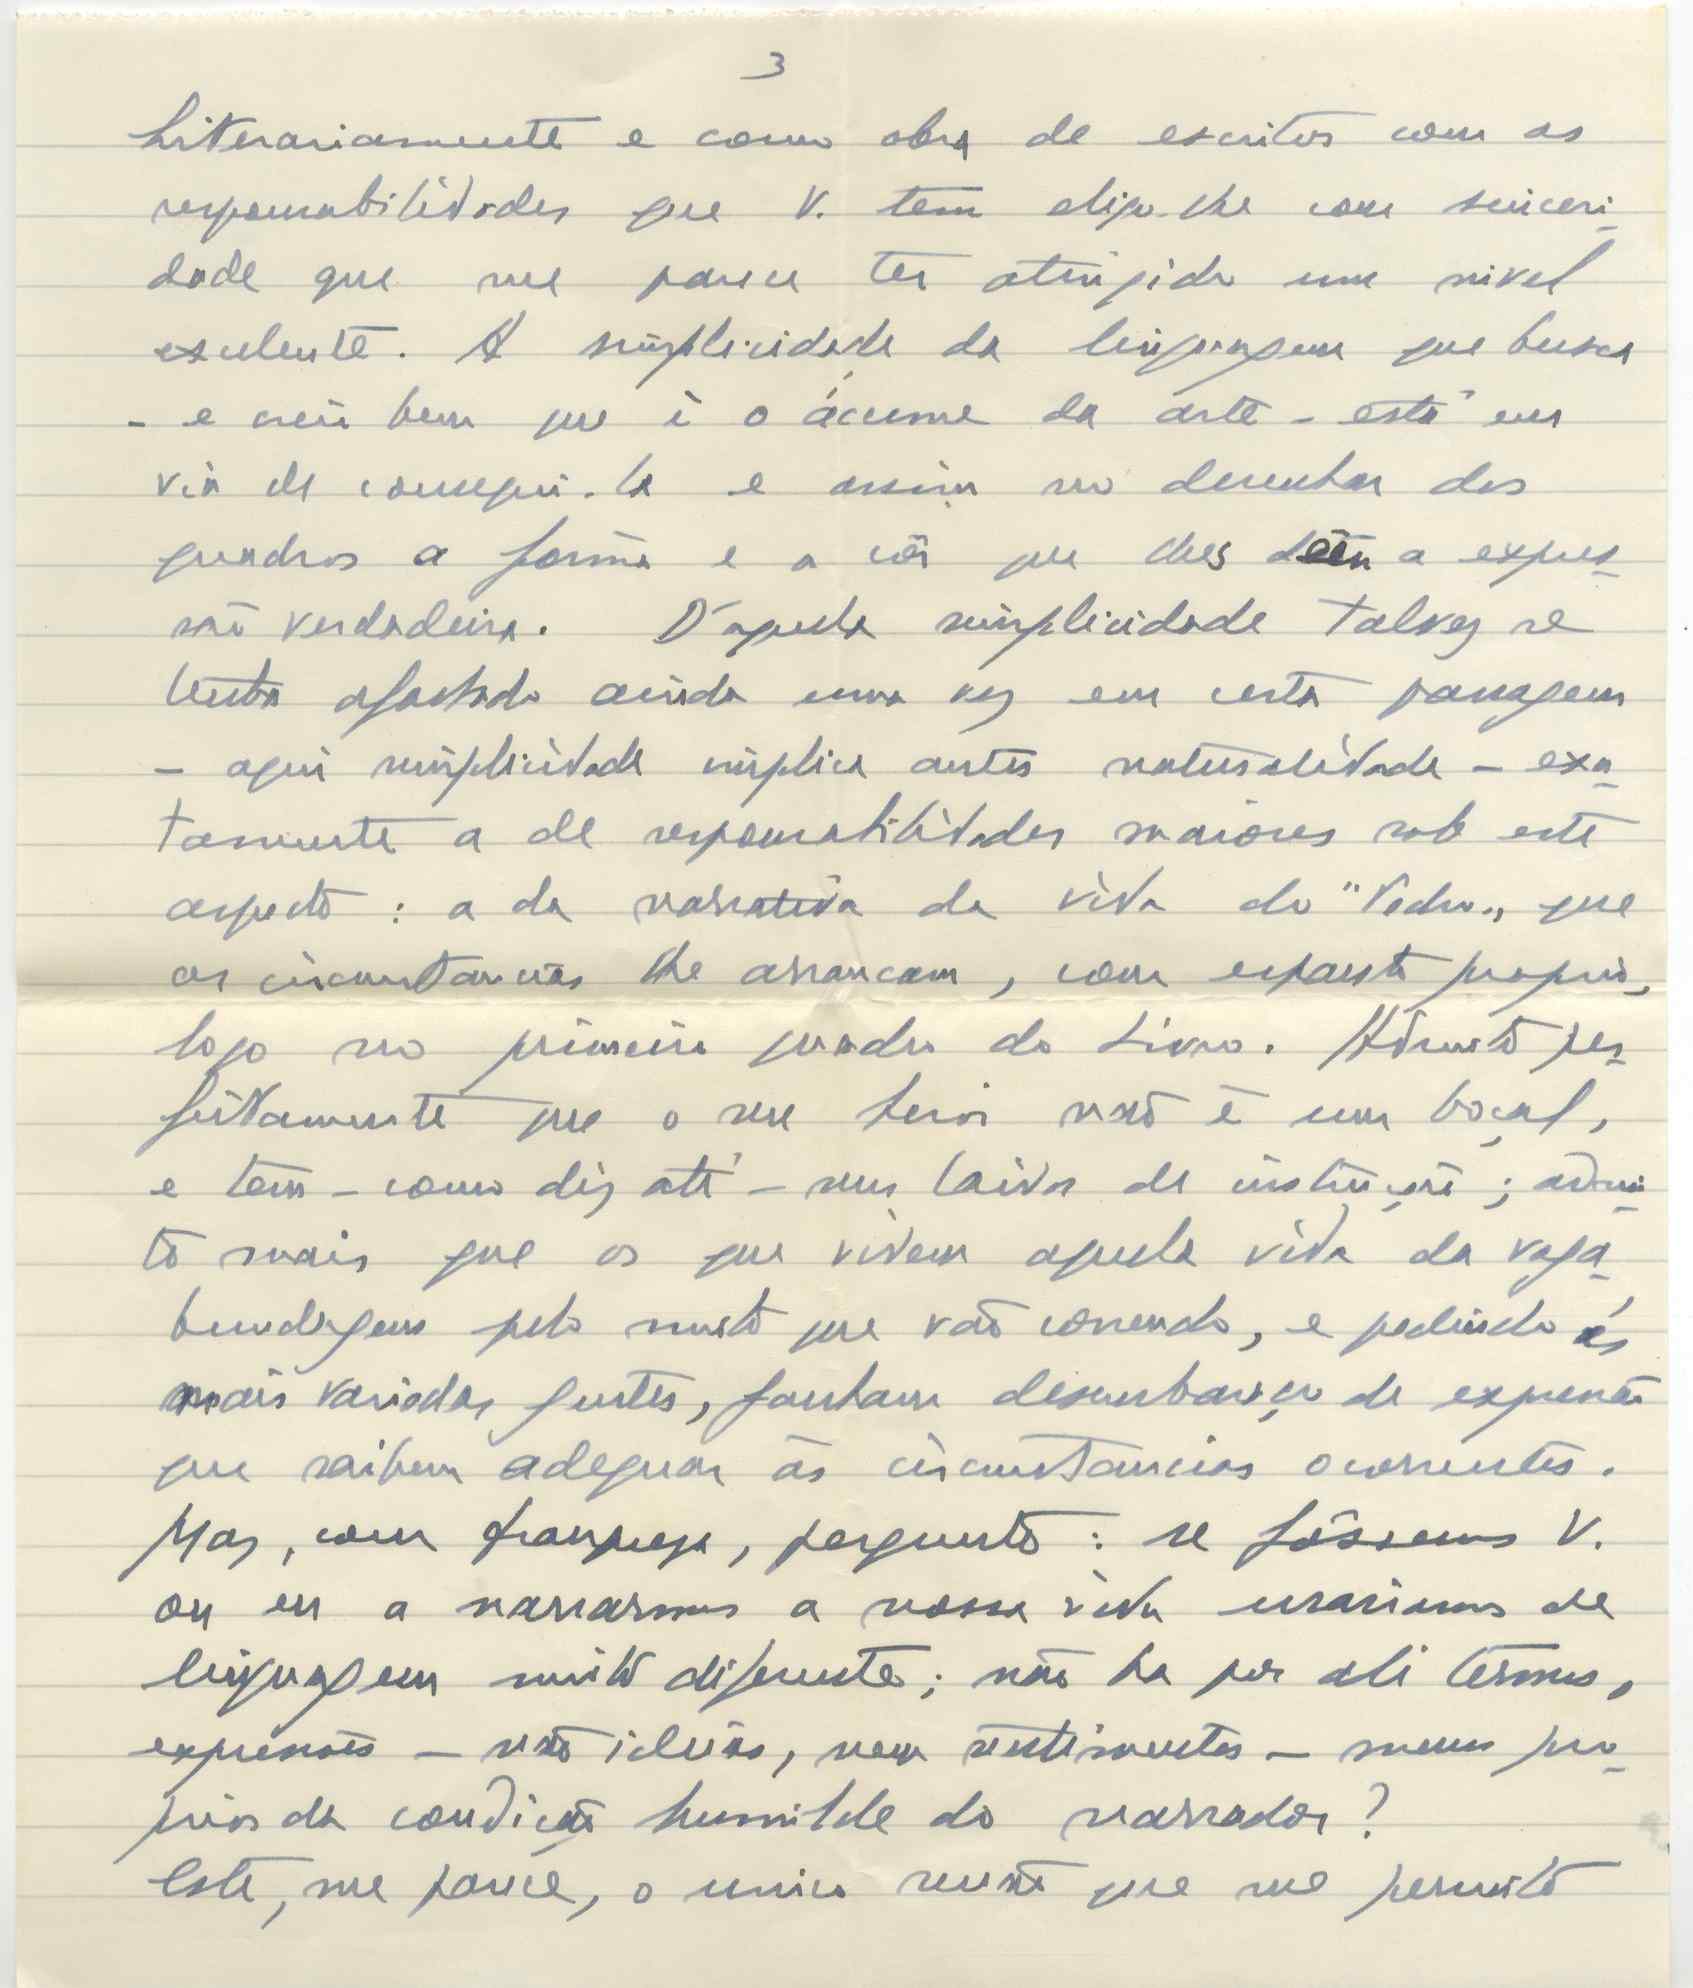 3
Literariamente e como obra de escritor com as
responsabilidades que V. tem digo-lhe com sinceri-
dade que me parece ter atingido um nivel
excelente. A simplicidade da linguagem que busca
- e creia bem que é o ácume da arte - está em
via de consegui-la e assim no desenhar dos
quadros a forma e a côr que lhes dêem a expres-
são verdadeira. D'aquela simplicidade talvez se
tenha afastado ainda uma vez em certa passagem
- aqui simplicidade implica antes naturalidade - exa-
tamente a de responsabilidades maiores sob este
aspecto : a da narrativa da vida do "Pedro", que
as circunstancias lhe arrancam, com espanto proprio,
logo no primeiro quadro do Livro. Admito per-
feitamente que o seu heroi não é um boçal,
e tem - como diz até - uns laivos de instrução ; admi-
to mais que os que vivem aquela vida da vaga-
bundagem pelo muito que vão correndo, e pedindo ás
mais variadas gentes, ganham desembaraço de expressão
que saibam adequar ás circunstancias ocorrentes.
Mas, com franqueza, pergunto : se fôssemos V.
ou eu a narrarmos a nossa vida usariamos de
linguagem muito diferente; não ha por ali termos,
expressões - não ideias, nem sentimentos - menos pro-
prios da condição humilde do narrador ?
Este, me parece, o unico senão que me permito